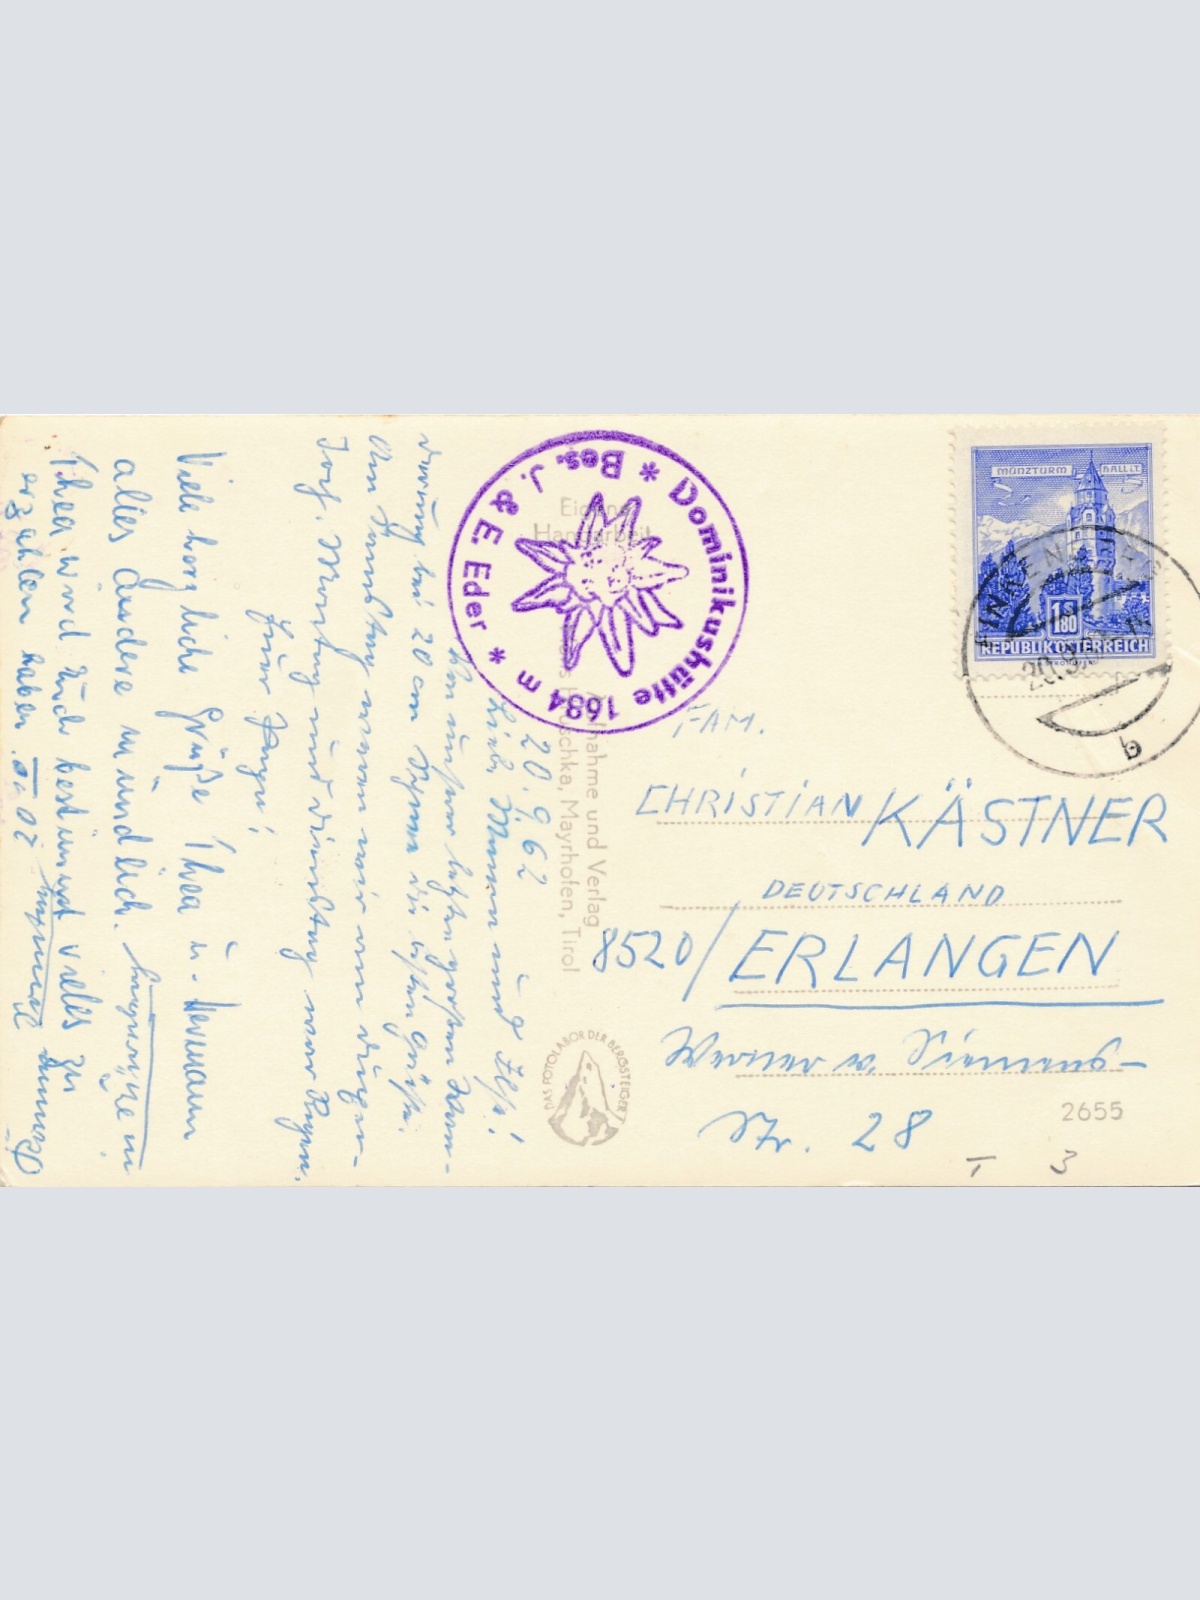 20.9.62
Liebe Mama und Ilse!
Von unserer letzten großen Wan-
derung bei 20 cm
Am Samstag waren wir am
Joch. Montag und Dienstag war Regen.
Euer
Viele herzliche Grüße Thea u. Hermann
alles andere mündlich.
Thea wird Euch bestimmt vieles zu
erzählen haben.
* Dominikushütte 1684 m *
Bes. J. & E. Eder
Eigene
Handarbeit
Aufnahme und Verlag
Hruschka, Mayrhofen, Tirol
DAS FOTOLABOR DER BERGSTEIGER
MÜNZTURM HALL i.T.
1.80
REPUBLIK ÖSTERREICH
20.9.
b
FAM.
CHRISTIAN KÄSTNER
DEUTSCHLAND
8520/ERLANGEN
Werner v. Siemens-
Str. 28
2655
T 3